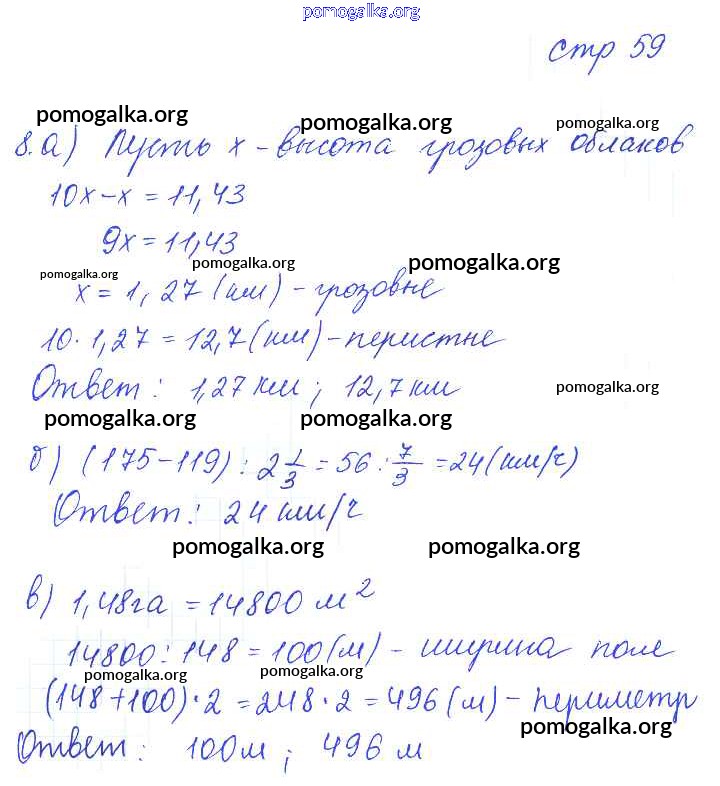 pomogalka.org
стр 59
pomogalka.org pomogalka.org pomogalka.org
8. а) Пусть x - высота грозовых облаков
10x - x = 11,43
9x = 11,43
pomogalka.org pomogalka.org
pomogalka.org
x = 1,27 (км) - грозовые
10 · 1,27 = 12,7 (км) - перистые
Ответ: 1,27 км; 12,7 км
pomogalka.org
pomogalka.org pomogalka.org
б) (175-119) : 2 1/3 = 56 : 7/3 = 24 (км/ч)
Ответ: 24 км/ч
pomogalka.org pomogalka.org
в) 1,48га = 14800 м²
14800 : 148 = 100 (м) - ширина поле
pomogalka.org pomogalka.org
(148 + 100) · 2 = 248 · 2 = 496 (м) - периметр
pomogalka.org
Ответ: 100м; 496 м